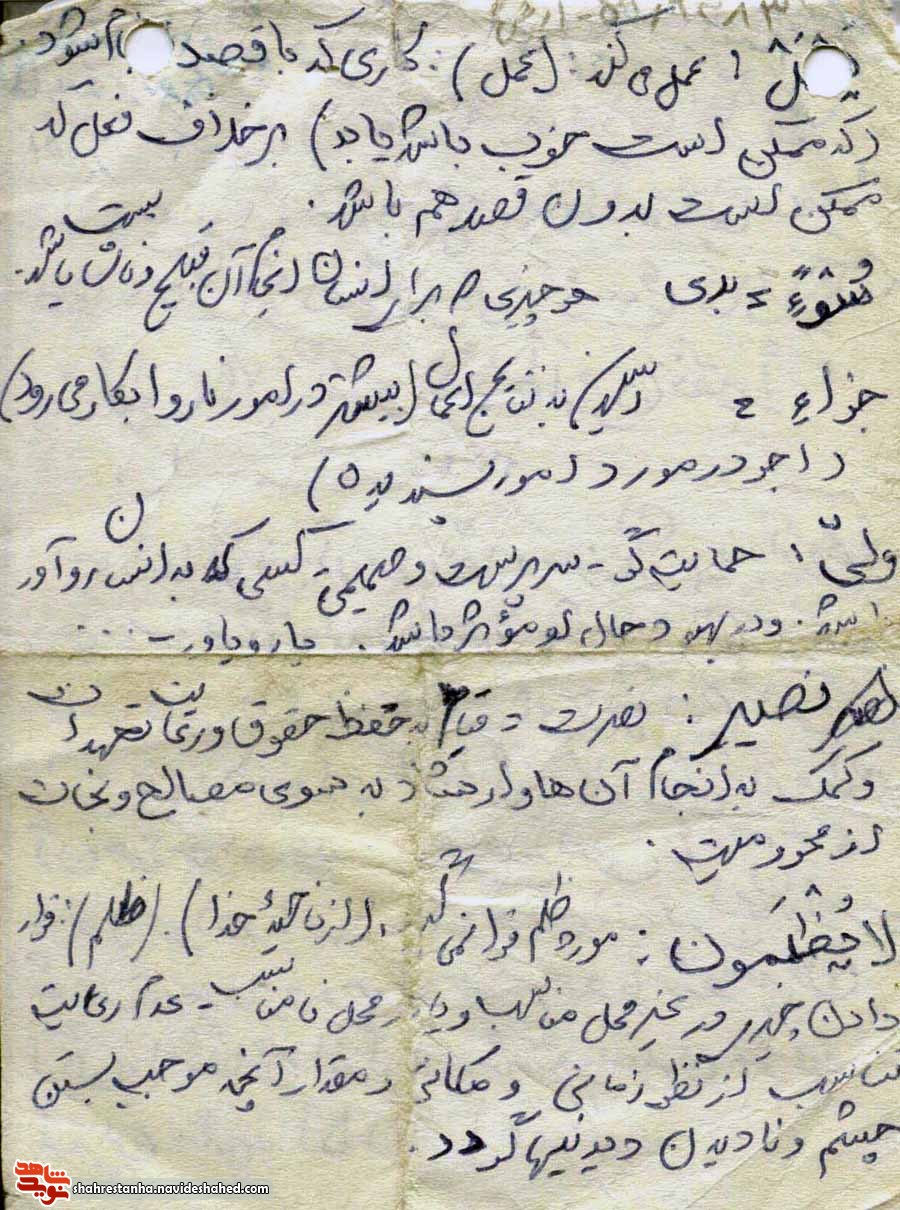 عمل می کند: (عمل): کاری که با قصد انجام شود.
(که ممکن است خوب باشد یا بد) برخلاف فعل که
ممکن است بدون قصد هم باشد.
سُوْءً = بدی هر چیزی که برای انسان انجام آن قبیح و ناشایست باشد.
جزاءِ = رسیدن به نتایج اعمال (بیشتر در امور ناروا بکار می رود)
(اجر در مورد امور پسندیده)
ولیّ: حمایت گر - سرپرست و صمیمی - کسی که به انسان رو آور
باشد. و در بهبود حال او مؤثر باشد. یار و یاور - ...
نصیر: نصرت = قیام به حفظ حقوق و رعایت تعهدات
و کمک به انجام آن ها و ارشاد به سوی مصالح و نجات
از محرومیت.
لا یُظْلَمون: مورد ظلم قرار نمی گیرند. (از ناحیهٔ خدا). (ظلم): قرار
دادن چیزی در غیر محل مناسب و یا در محل نامناسب - عدم رعایت
تناسب از نظر زمانی و مکانی و مقدار آنچه موجب بستن
چشم و نادیدن دیدنیها گردد.
شاهد
نوید
shahrestanha.navideshahed.com